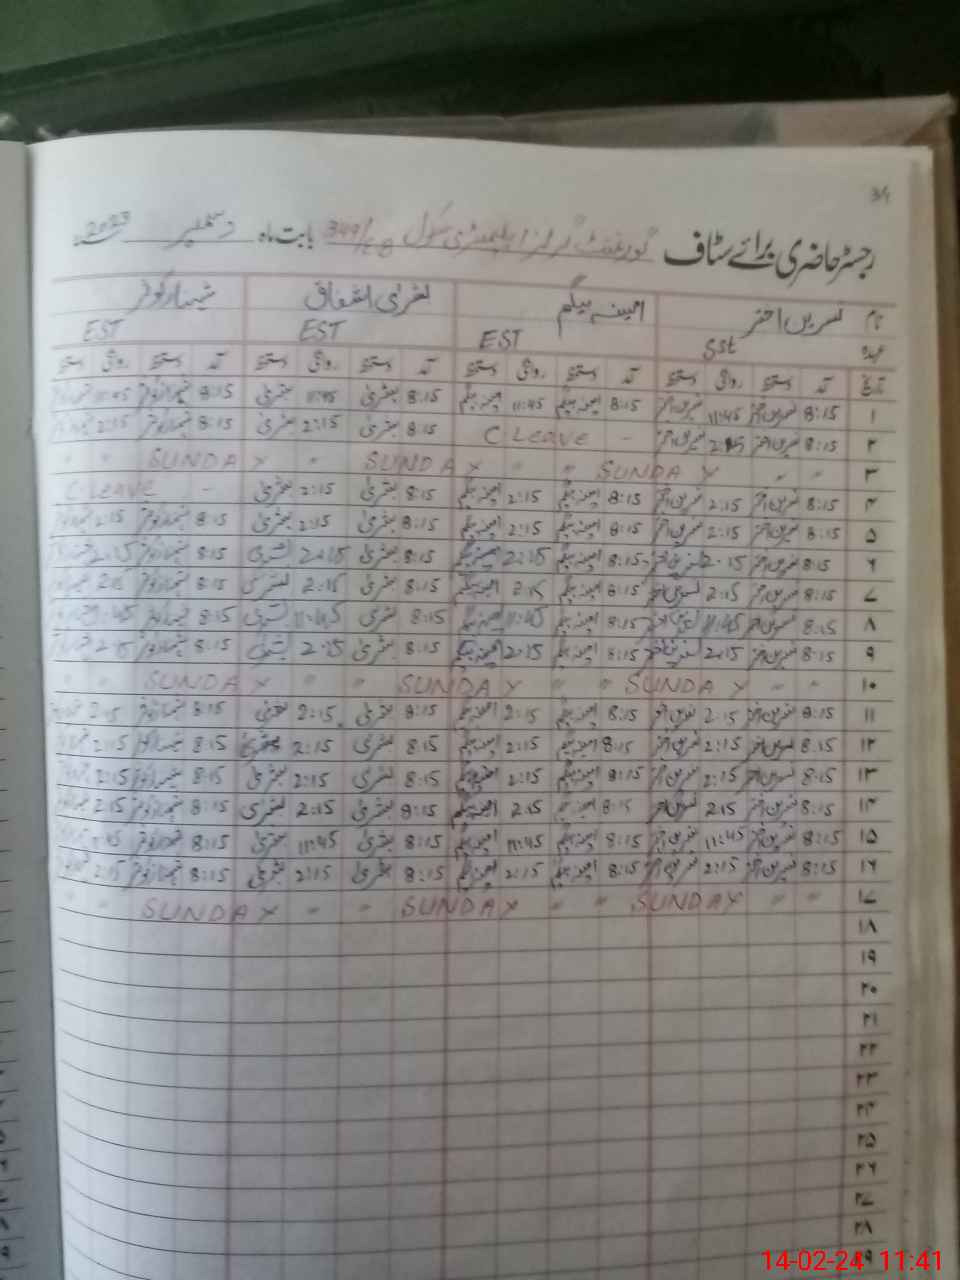 34
رجسٹر حاضری برائے سٹاف گورنمنٹ گرلز ایلیمنٹری سکول 349/EB بابت ماہ دسمبر 2023ء
نام نسرین اختر امینہ بیگم بشریٰ اشفاق شہناز کوثر
عہدہ SST EST EST EST
تاریخ آمد دستخط روانگی دستخط آمد دستخط روانگی دستخط آمد دستخط روانگی دستخط آمد دستخط روانگی دستخط
۱ 8:15 نسرین اختر 11:45 نسرین اختر 8:15 امینہ بیگم 11:45 امینہ بیگم 8:15 بشریٰ 11:45 بشریٰ 8:15 شہناز کوثر 11:45
۲ 8:15 نسرین اختر 2:15 نسرین اختر - C Leave 8:15 بشریٰ 2:15 بشریٰ 8:15 شہناز کوثر 2:15
۳ " " SUNDAY " " SUNDAY " SUNDAY " "
۴ 8:15 نسرین اختر 2:15 نسرین اختر 8:15 امینہ بیگم 2:15 امینہ بیگم 8:15 بشریٰ 2:15 بشریٰ - C Leave
۵ 8:15 نسرین اختر 2:15 نسرین اختر 8:15 امینہ بیگم 2:15 امینہ بیگم 8:15 بشریٰ 2:15 بشریٰ 8:15 شہناز کوثر 2:15
۶ 8:15 نسرین اختر 2:15 نسرین اختر 8:15 امینہ بیگم 2:15 امینہ بیگم 8:15 بشریٰ 2:15 بشریٰ 8:15 شہناز کوثر 2:15
۷ 8:15 نسرین اختر 2:15 نسرین اختر 8:15 امینہ بیگم 2:15 امینہ بیگم 8:15 بشریٰ 2:15 بشریٰ 8:15 شہناز کوثر 2:15
۸ 8:15 نسرین اختر 11:45 نسرین اختر 8:15 امینہ بیگم 11:45 امینہ بیگم 8:15 بشریٰ 11:45 بشریٰ 8:15 شہناز کوثر 11:45
۹ 8:15 نسرین اختر 2:15 نسرین اختر 8:15 امینہ بیگم 2:15 امینہ بیگم 8:15 بشریٰ 2:15 بشریٰ 8:15 شہناز کوثر 2:15
۱۰ " " SUNDAY " " SUNDAY " " SUNDAY " "
۱۱ 8:15 نسرین اختر 2:15 نسرین اختر 8:15 امینہ بیگم 2:15 امینہ بیگم 8:15 بشریٰ 2:15 بشریٰ 8:15 شہناز کوثر 2:15
۱۲ 8:15 نسرین اختر 2:15 نسرین اختر 8:15 امینہ بیگم 2:15 امینہ بیگم 8:15 بشریٰ 2:15 بشریٰ 8:15 شہناز کوثر 2:15
۱۳ 8:15 نسرین اختر 2:15 نسرین اختر 8:15 امینہ بیگم 2:15 امینہ بیگم 8:15 بشریٰ 2:15 بشریٰ 8:15 شہناز کوثر 2:15
۱۴ 8:15 نسرین اختر 2:15 نسرین اختر 8:15 امینہ بیگم 2:15 امینہ بیگم 8:15 بشریٰ 2:15 بشریٰ 8:15 شہناز کوثر 2:15
۱۵ 8:15 نسرین اختر 11:45 نسرین اختر 8:15 امینہ بیگم 11:45 امینہ بیگم 8:15 بشریٰ 11:45 بشریٰ 8:15 شہناز کوثر
۱۶ 8:15 نسرین اختر 2:15 نسرین اختر 8:15 امینہ بیگم 2:15 امینہ بیگم 8:15 بشریٰ 2:15 بشریٰ 8:15 شہناز کوثر 2:15
۱۷ " " SUNDAY " " SUNDAY " " SUNDAY " "
۱۸
۱۹
۲۰
۲۱
۲۲
۲۳
۲۴
۲۵
۲۶
۲۷
۲۸
۲۹
14-02-24 11:41